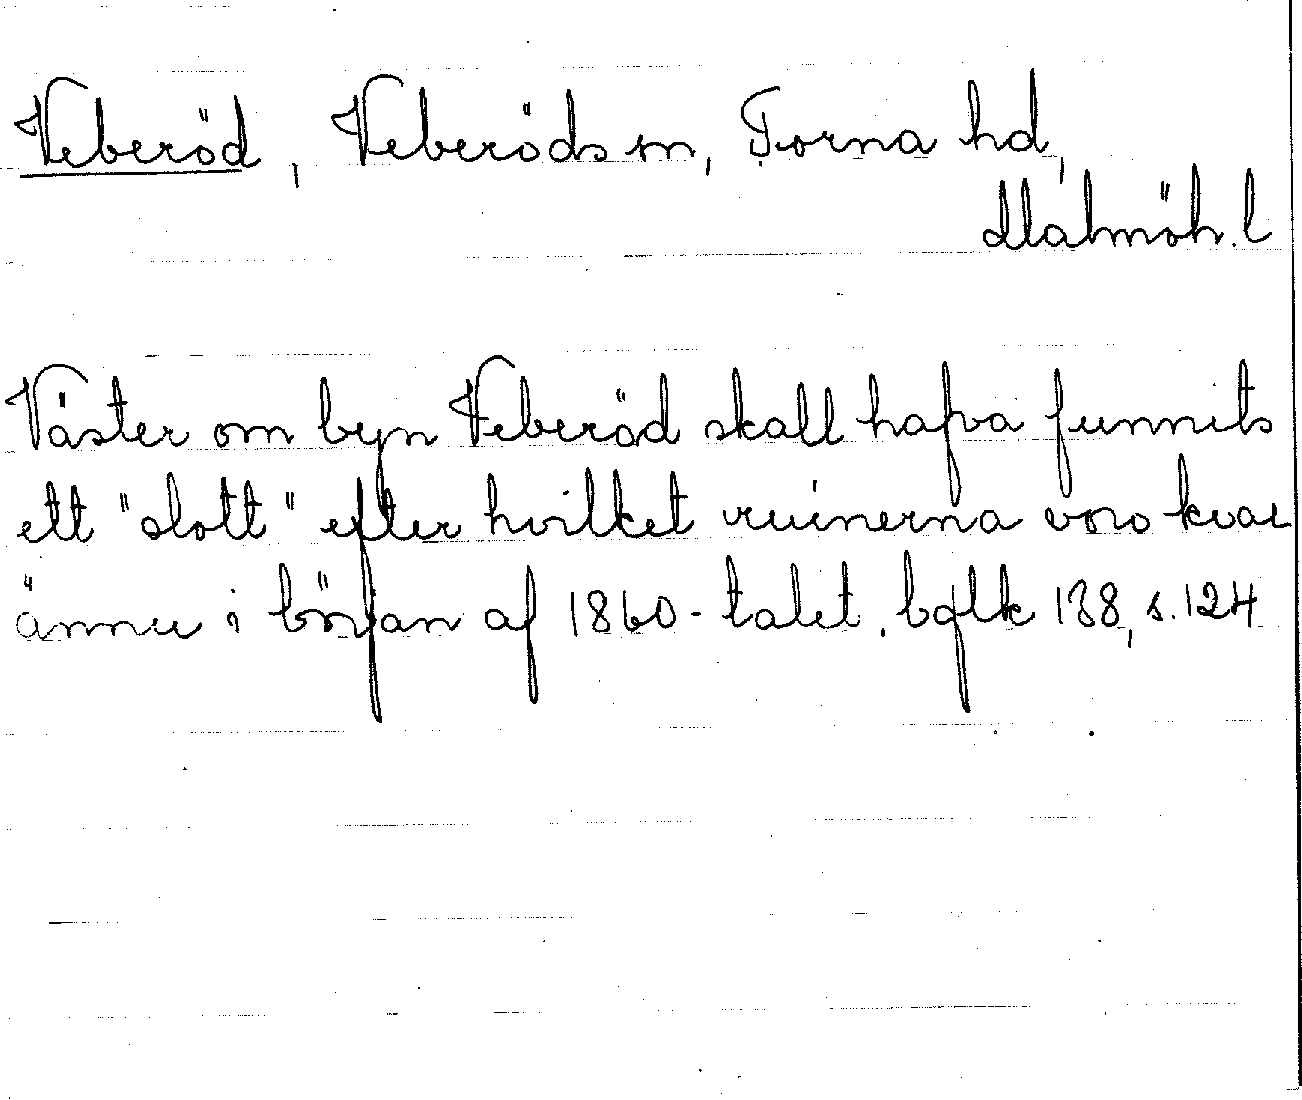 Veberöd, Veberöds sn, Torna hd,
Malmöh. l
Väster om byn Veberöd skall hafva funnits
ett "slott" efter hvilket ruinerna voro kvar
ännu i början af 1860-talet. bqlk 138, s. 124